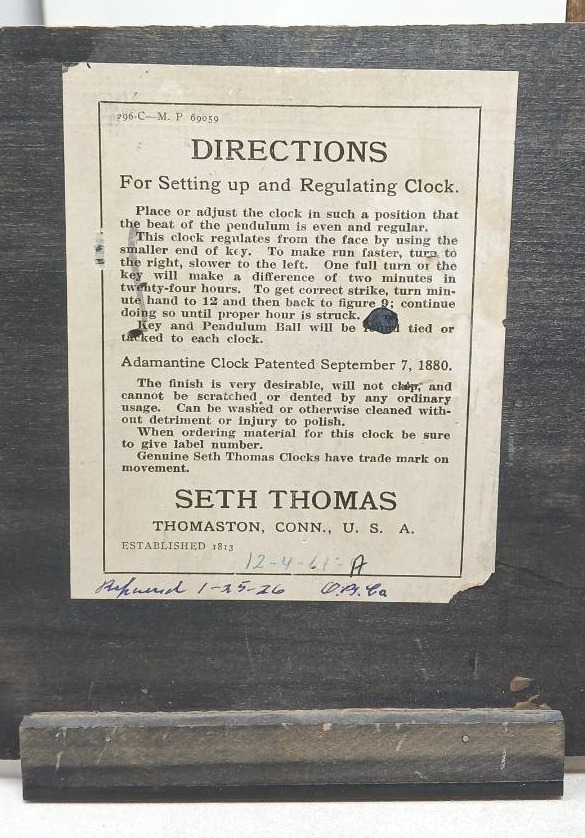 296-C—M. P 69059
DIRECTIONS
For Setting up and Regulating Clock.
Place or adjust the clock in such a position that
the beat of the pendulum is even and regular.
This clock regulates from the face by using the
smaller end of key. To make run faster, turn to
the right, slower to the left. One full turn of the
key will make a difference of two minutes in
twenty-four hours. To get correct strike, turn min-
ute hand to 12 and then back to figure 9; continue
doing so until proper hour is struck.
Key and Pendulum Ball will be tied or
tacked to each clock.
Adamantine Clock Patented September 7, 1880.
The finish is very desirable, will not chip, and
cannot be scratched or dented by any ordinary
usage. Can be washed or otherwise cleaned with-
out detriment or injury to polish.
When ordering material for this clock be sure
to give label number.
Genuine Seth Thomas Clocks have trade mark on
movement.
SETH THOMAS
THOMASTON, CONN., U. S. A.
ESTABLISHED 1813
12-4-61 A
1-25-26